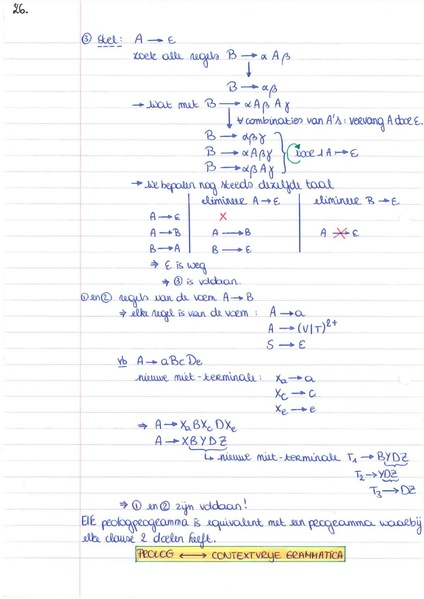 26.
③ Stel: A → ε
zoek alle regels B → α A β
↓
B → αβ
→ wat met B → α A β A γ
↓ ∀ combinaties van A's: vervang A door ε.
B → αβγ
B → αAβγ } door 1 A → ε
B → αβAγ
→ We bepalen nog steeds dezelfde taal
elimineer A → ε | elimineer B → ε
A → ε | X | 
A → B | A → B | A → ε
B → A | B → ε
⇒ ε is weg
⇒ ③ is voldaan.
① en ② regels van de vorm A → B
⇒ elke regel is van de vorm: A → a
A → (V|T)²⁺
S → ε
vb A → aBcDe
nieuwe niet-terminale: Xa → a
Xc → c
Xe → e
⇒ A → XaBXcDXe
A → XBYDZ
↳ nieuwe niet-terminale T₁ → BYDZ
T₂ → YDZ
T₃ → DZ
⇒ ① en ② zijn voldaan!
Elk prologprogramma is equivalent met een programma waarbij
elke clause 2 doelen heeft.
PROLOG ⟷ CONTEXTVRIJE GRAMMATICA